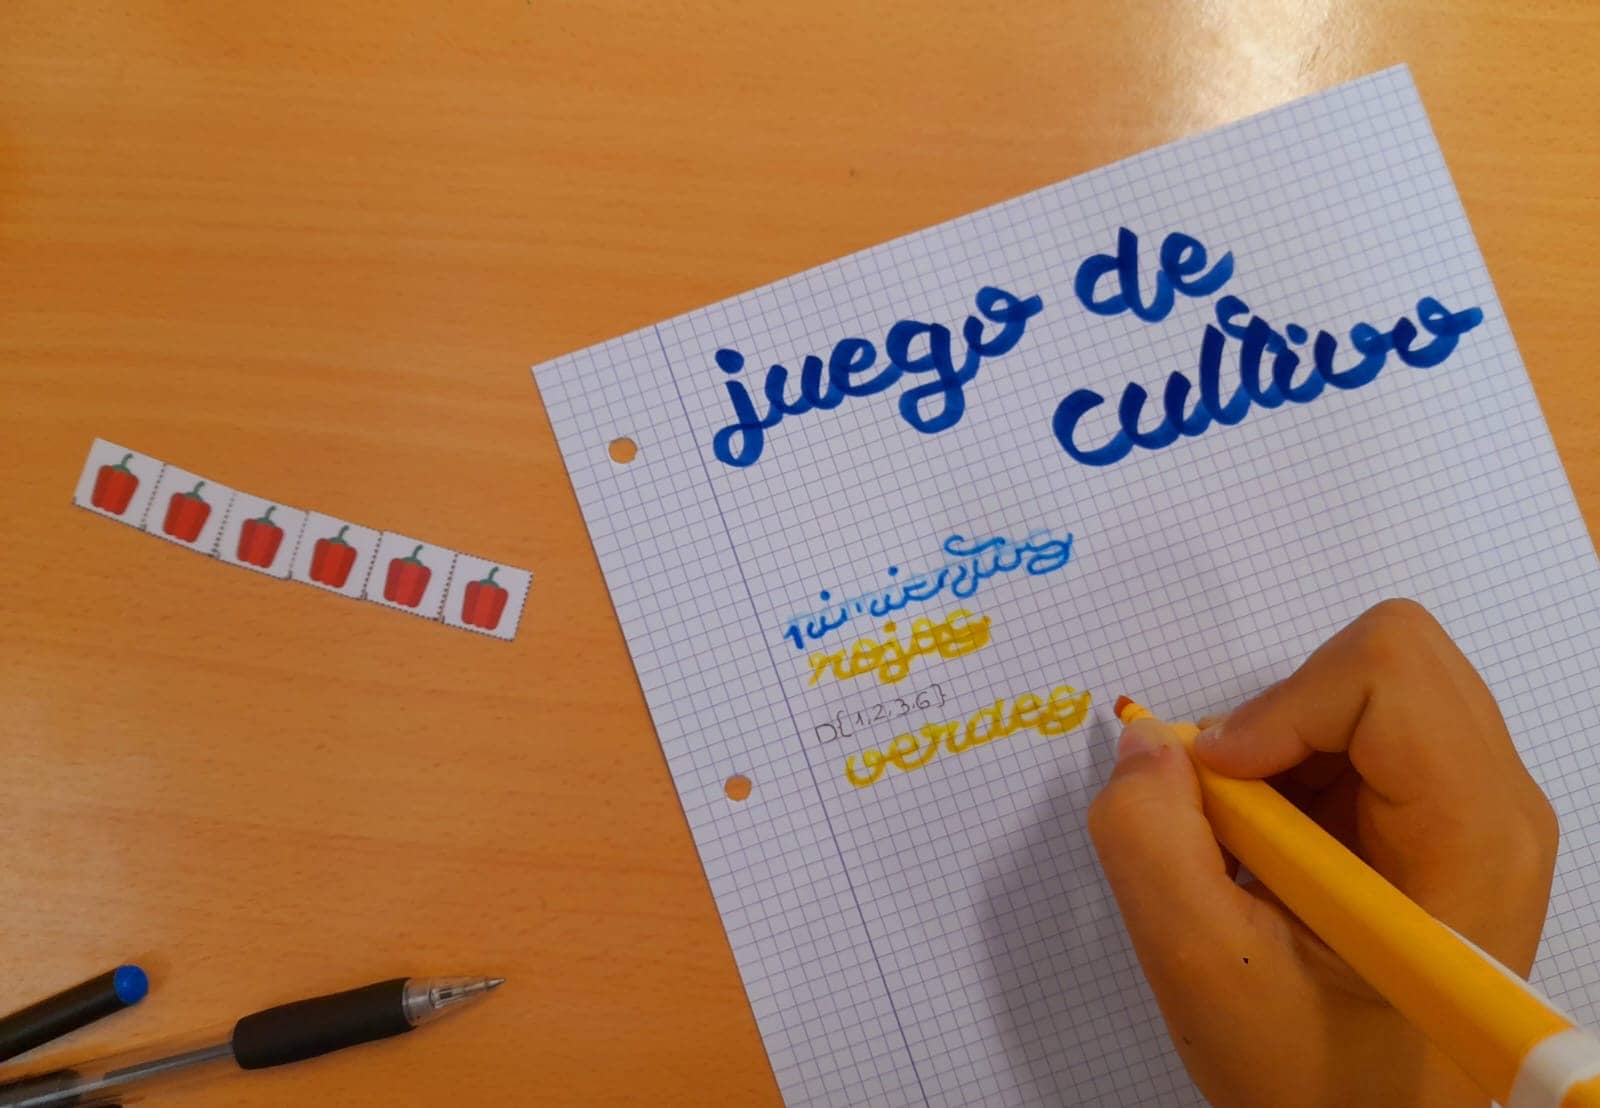 juego de
cultivo
pimientos
rojos
D{1,2,3,6}
verdes